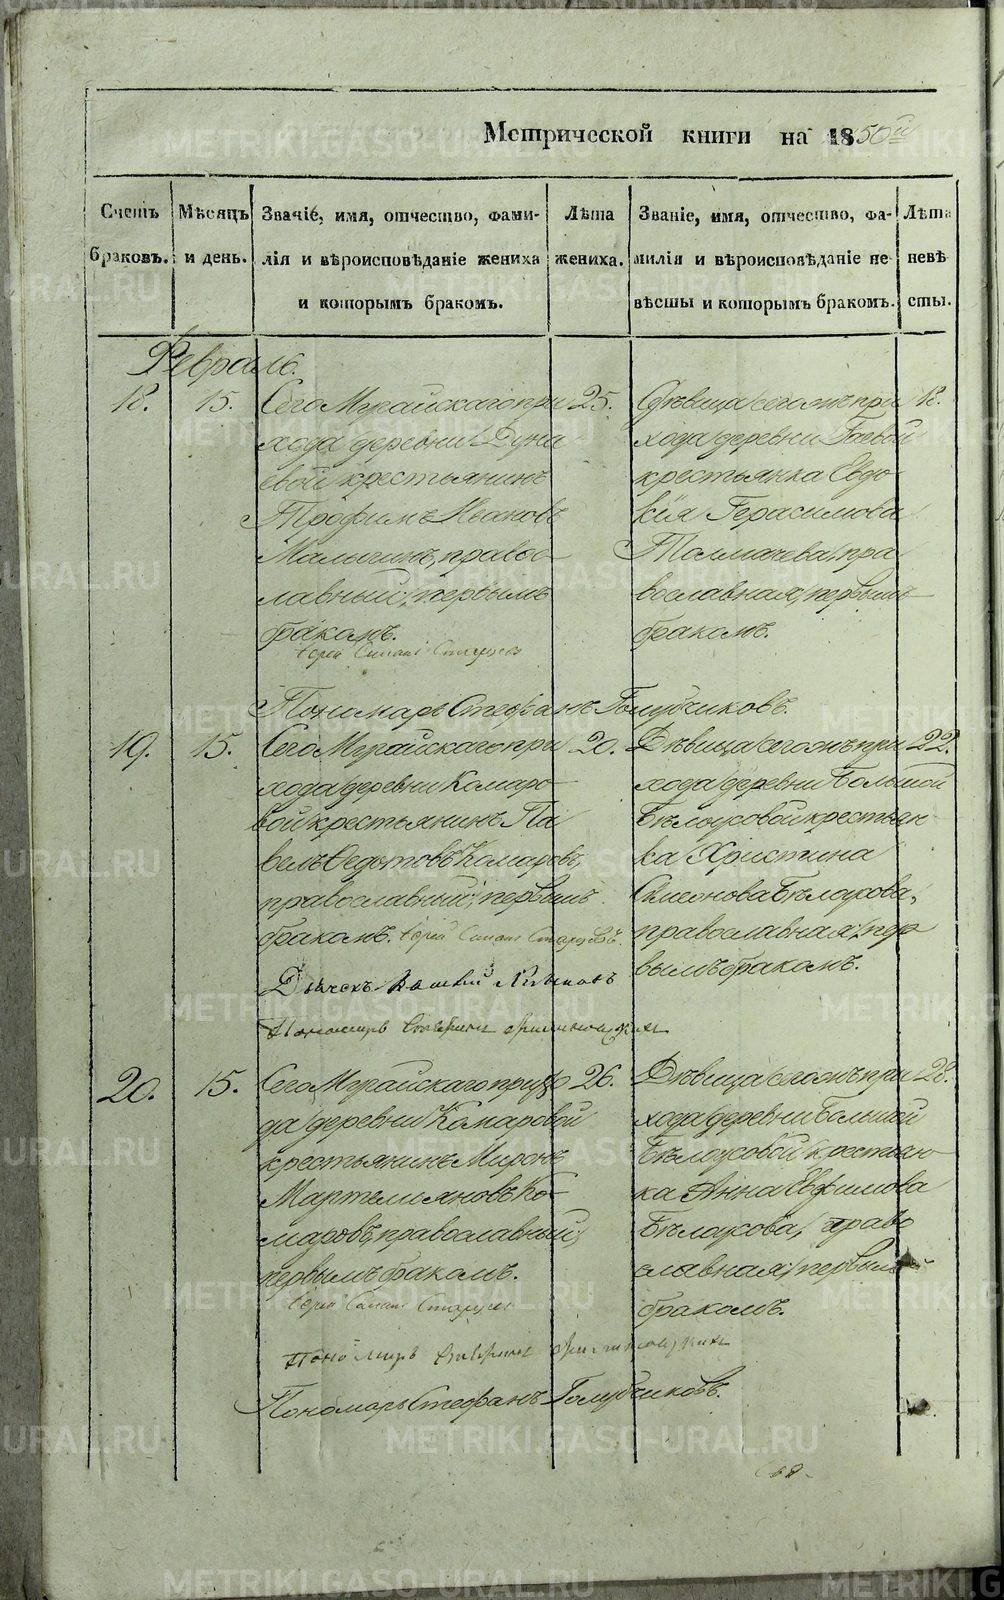 Метрической книги на 1850й
Счетъ браковъ.
Мѣсяцъ и день.
Званіе, имя, отчество, фами-
лія и вѣроисповѣданіе жениха
и которымъ бракомъ.
Лѣта жениха.
Званіе, имя, отчество, фа-
милія и вѣроисповѣданіе не-
вѣсты и которымъ бракомъ.
Лѣта невѣ
сты.
Февраль.
18. 15.
Сего Мурайскаго при
хода деревни Дуна
евой крестьянинъ
Трофимъ Ивановъ
Малыгинъ, правос-
лавный, первымъ
бракомъ.
25.
Дѣвица, сего жъ при
хода деревни Гаевой
крестьянка Евдо-
кія Герасимова
Толмачева, пра
вославная, первымъ
бракомъ.
18.
Пономарь Стефанъ Голубчиковъ.
19. 15.
Сего Мурайскаго при
хода деревни Комаро-
вой крестьянинъ Па
велъ Федотовъ Комаровъ,
православный, первымъ
бракомъ.
20.
Дѣвица, сего жъ при
хода деревни Большой
Бѣлоусовой крестьян
ка Христина
Симеонова Бѣлоусова,
православная, пер
вымъ бракомъ.
22.
Дьячекъ
Пономарь
20. 15.
Сего Мурайскаго прихо
да деревни Комаровой
крестьянинъ Миронъ
Мартемьяновъ Ко-
маровъ, православный,
первымъ бракомъ.
26.
Дѣвица, сего жъ при
хода деревни Большой
Бѣлоусовой крестьян-
ка Анна Евфимова
Бѣлоусова, право
славная, первымъ
бракомъ.
28.
Пономарь
Пономарь Стефанъ Голубчиковъ.
METRIKI.GASO-URAL.RU